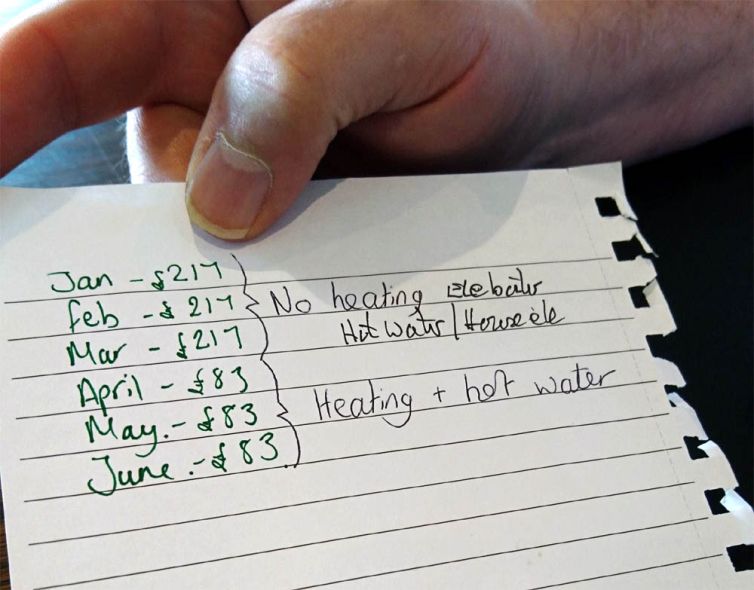 Jan - £217
Feb - £217
Mar - £217
No heating
Hot water /
April - £83
May. - £83
June. - £83
Heating + hot water